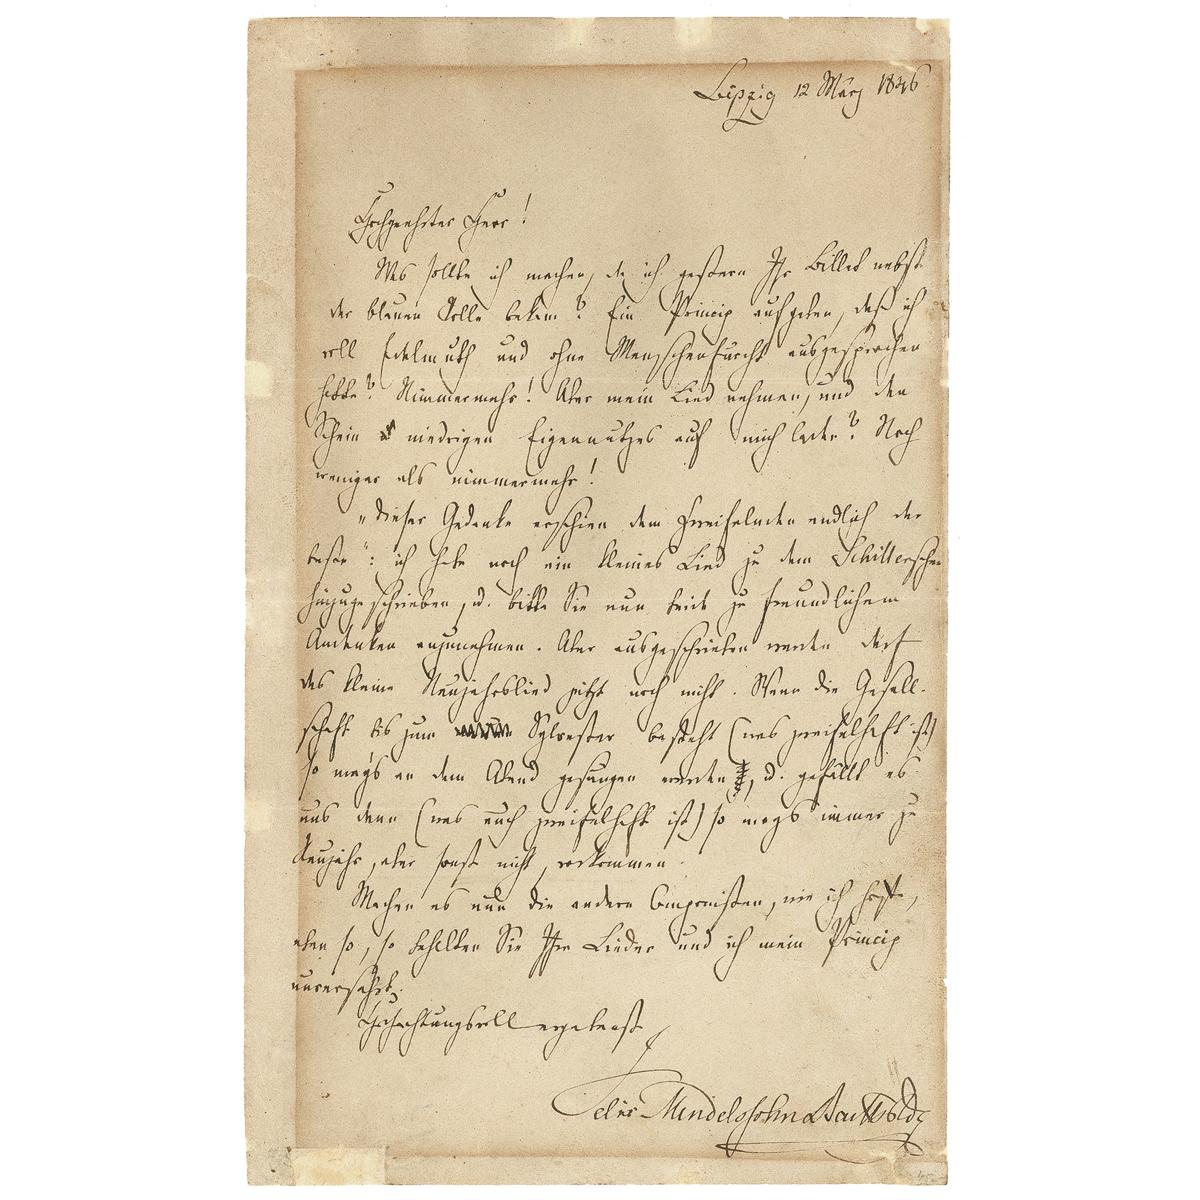 Leipzig 12 März 1846
Hochgeehrter Herr!
Was sollte ich machen, da ich gestern Ihr Billet nebst
der blauen Rolle bekam? Ein Princip aufgeben, daß ich
voll Edelmuth und ohne Menschenfurcht ausgesprochen
hatte? Nimmermehr! Aber mein Lied nehmen, und den
Schein niedrigen Eigennutzes auf mich laden? Noch
weniger als nimmermehr!
„Dieser Gedanke erschien dem Zweifelnden endlich der
beste“: ich habe noch ein kleines Lied zu dem Schillerschen
hinzugeschrieben, u. bitte Sie nun beide zu freundlichem
Andenken anzunehmen. Aber ausgeschrieben werden darf
das kleine Neujahrslied jetzt noch nicht. Wenn die Gesell-
schaft bis zum Sylvester besteht (was zweifelhaft ist)
so mag's an dem Abend gesungen werden, u. gefällt es
uns dann (was auch zweifelhaft ist) so mags immer zu
Neujahr, aber sonst nicht, vorkommen.
Machen es nun die andern Componisten, wie ich hoffe,
eben so, so behalten Sie Ihre Lieder und ich mein Princip
unversehrt.
Hochachtungsvoll ergebenst
Felix Mendelssohn Bartholdy